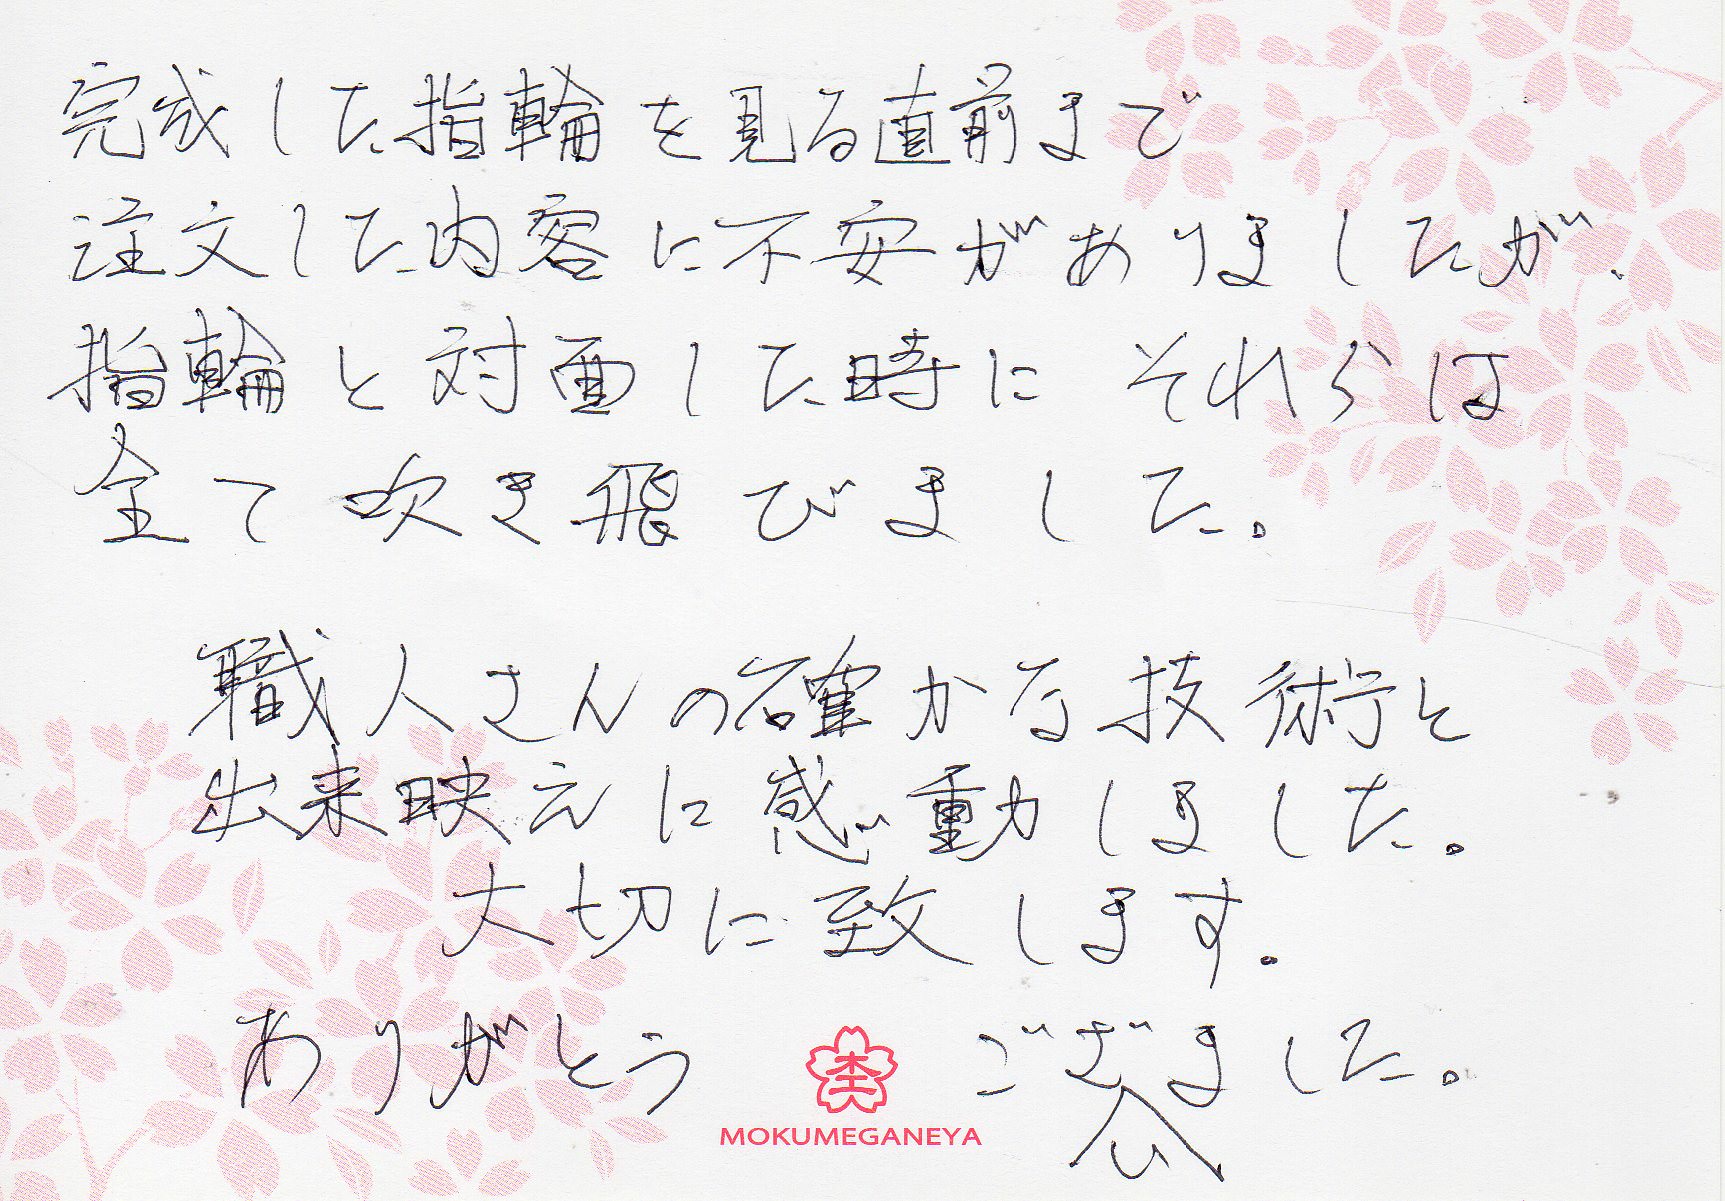 完成した指輪を見る直前まで
注文した内容に不安がありましたが、
指輪と対面した時に それらは
全て吹き飛びました。
職人さんの確かな技術と
出来映えに感動しました。
大切に致します。
ありがとう ございました。
MOKUMEGANEYA